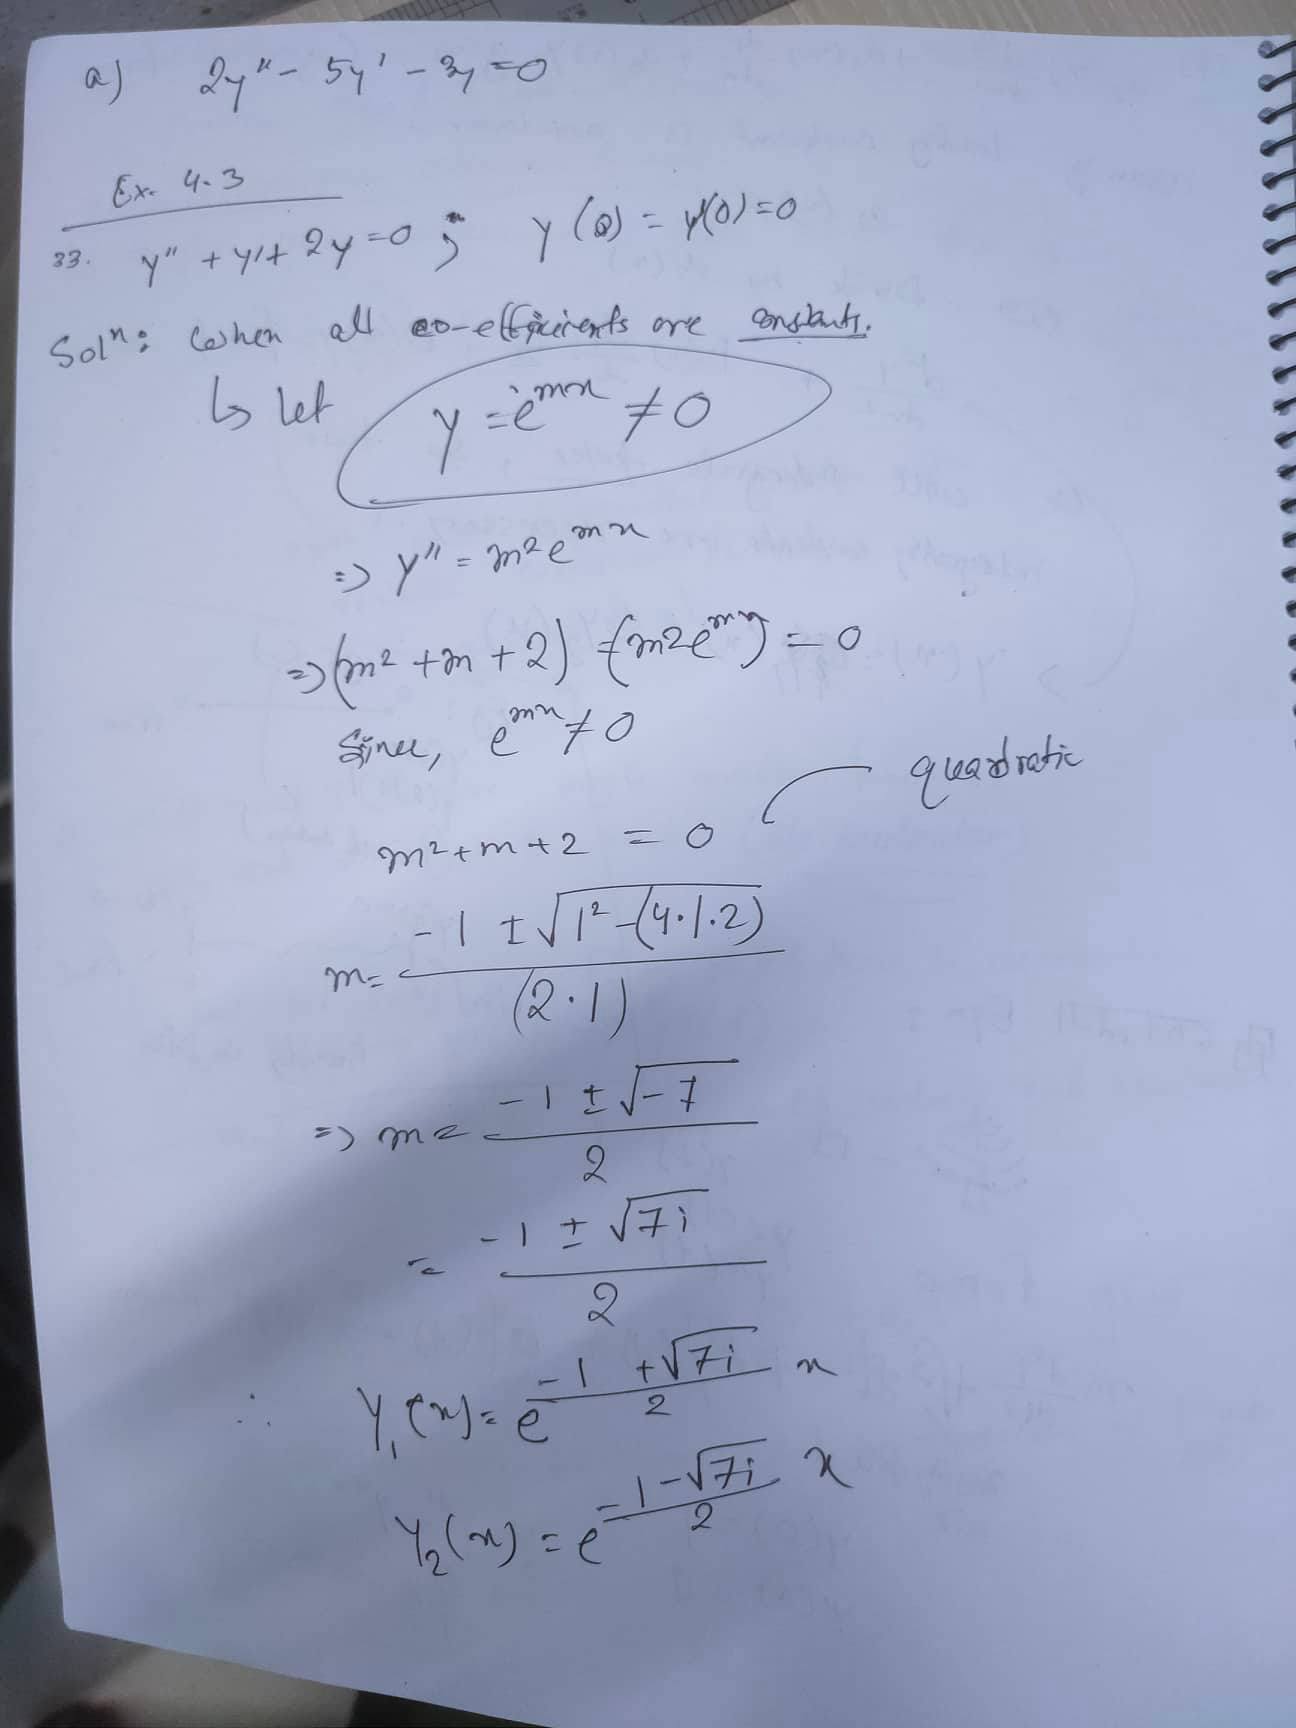 a) 2y'' - 5y' - 3y = 0
Ex. 4.3
33. y'' + y' + 2y = 0 ; y(0) = y'(0) = 0
Solⁿ: When all co-efficients are constants.
↳ Let y = e^{mx} ≠ 0
=> y'' = m²e^{mx}
=> (m² + m + 2) (m²e^{mx}) = 0
Since, e^{mx} ≠ 0
quadratic
m² + m + 2 = 0
m = (-1 ± √(1² - (4·1·2))) / (2·1)
=> m = (-1 ± √-7) / 2
= (-1 ± √7i) / 2
∴ Y₁(x) = e^{(-1 + √7i)/2 x}
Y₂(x) = e^{(-1 - √7i)/2 x}